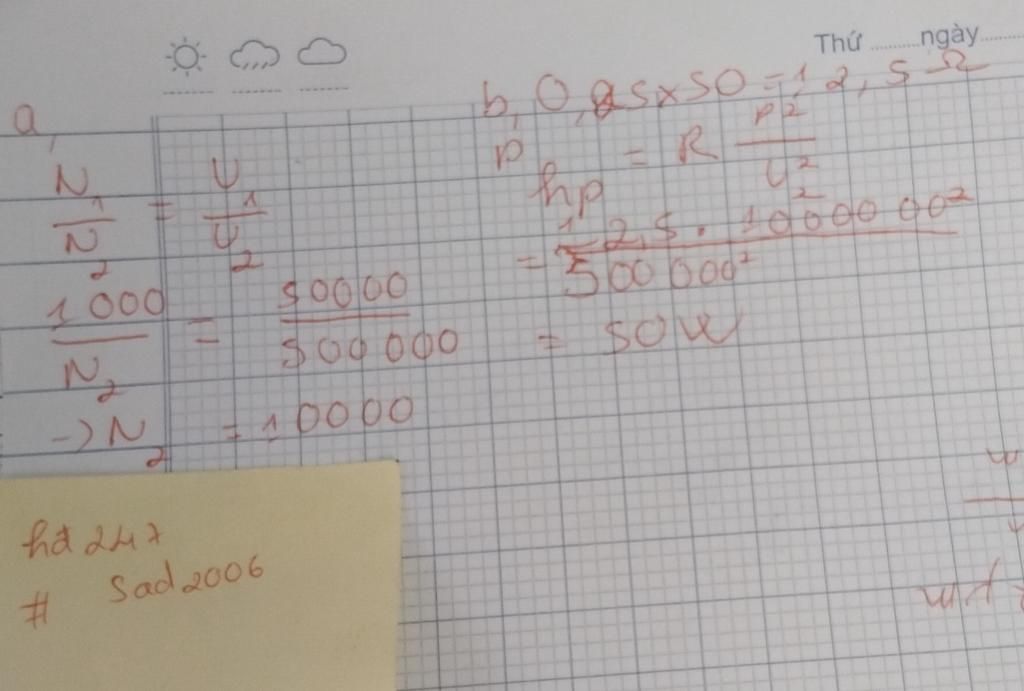 Thứ ........ngày........
a,
N₁/N₂ = U₁/U₂
1000/N₂ = 50000/500000
-> N₂ = 10000
b, 0,25x50 = 12,5 Ω
P hp = R P²/U²
= 12,5 . 1000000²/500000²
= 50W
hd 247
# Sad2006